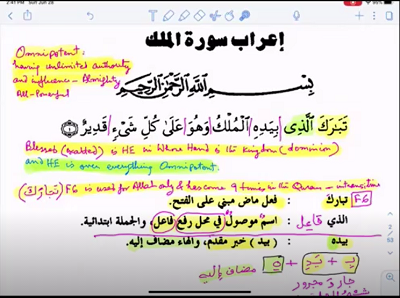 2:41 PM Sun Jun 28
إعراب سورة الملك
Omnipotent:
having unlimited authority
and influence - Almighty
All-Powerful
بِسْمِ اللَّهِ الرَّحْمَٰنِ الرَّحِيمِ
تَبَٰرَكَ الَّذِى بِيَدِهِ الْمُلْكُ وَهُوَ عَلَىٰ كُلِّ شَىْءٍ قَدِيرٌ ١
Blessed (exalted) is HE in Whose Hand is the Kingdom (dominion)
and HE is over everything Omnipotent.
(تبارك) F6 is used for Allah only & has come 9 times in the Quran - intransitive
تبارك : فعل ماض مبني على الفتح. F6
الذي فاعل : اسم موصول في محل رفع فاعل، والجملة ابتدائية.
بيده : (بيد) خبر مقدم، والهاء مضاف إليه.
بِـ + يَدِ + ـهِ مضاف إليه
جار و مجرور